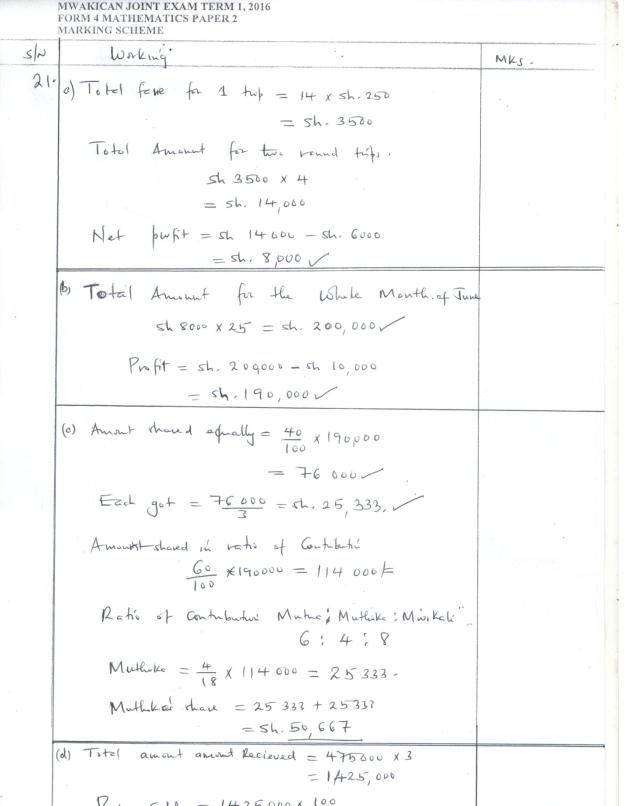 MWAKICAN JOINT EXAM TERM 1, 2016
FORM 4 MATHEMATICS PAPER 2
MARKING SCHEME
S/N Working MKS.
21. a) Total fare for 1 trip = 14 x sh. 250
= sh. 3500
Total Amount for two round trips.
sh 3500 x 4
= sh. 14,000
Net profit = sh 14000 – sh. 6000
= sh. 8,000 ✓
(b) Total Amount for the whole Month of June
sh 8000 x 25 = sh. 200,000 ✓
Profit = sh. 200000 – sh 10,000
= sh. 190,000 ✓
(c) Amount shared equally = 40/100 x 190,000
= 76 000 ✓
Each got = 76 000/3 = sh. 25,333. ✓
Amount shared in ratio of
60/100 x 190000 = 114 000/=
Ratio of Mutua : Muthike : Mwikali
6 : 4 : 8
Muthike = 4/18 x 114 000 = 25 333.
share = 25 333 + 25333
= sh. 50,667
(d) Total amount amount Recieved = 475000 x 3
= 1,425,000
= 1425000 x 100